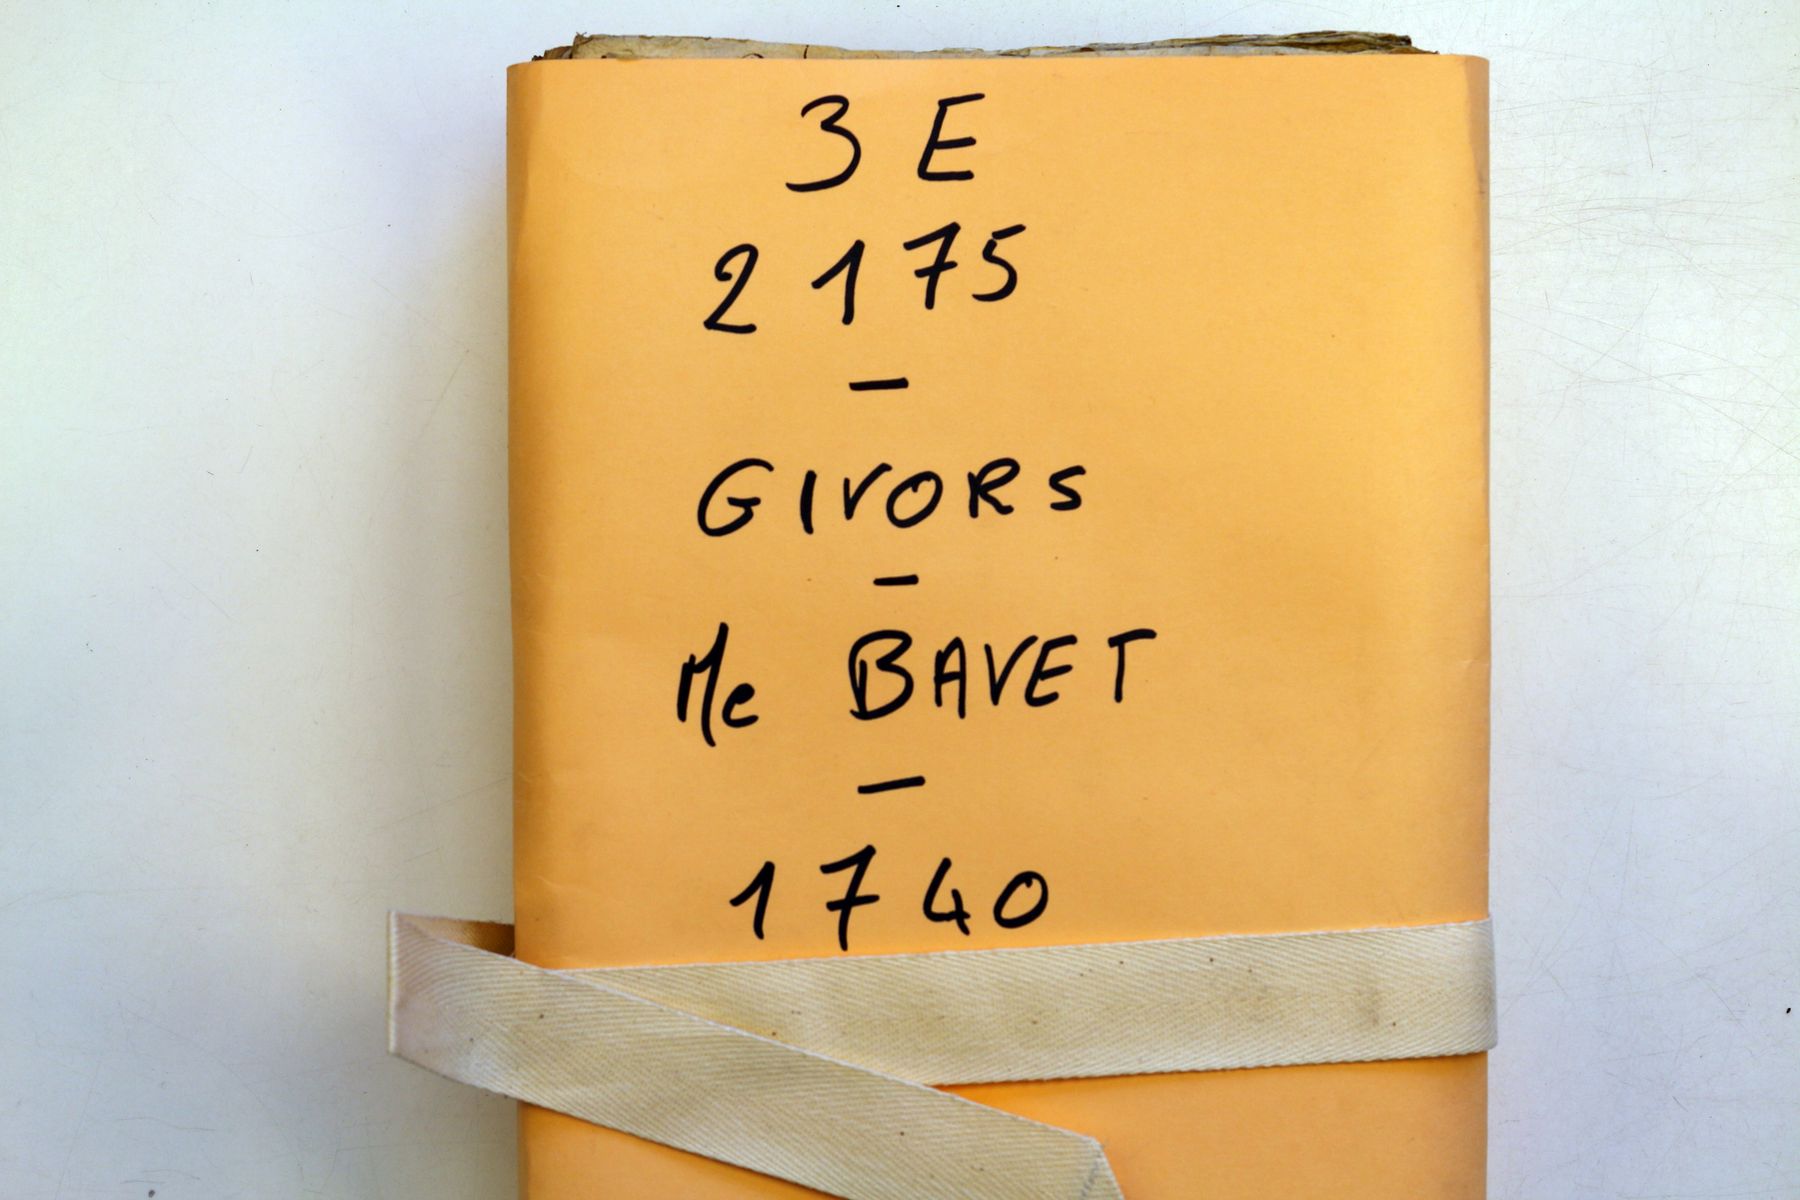 3 E
2175
–
GIVORS
–
Me BAVET
–
1740